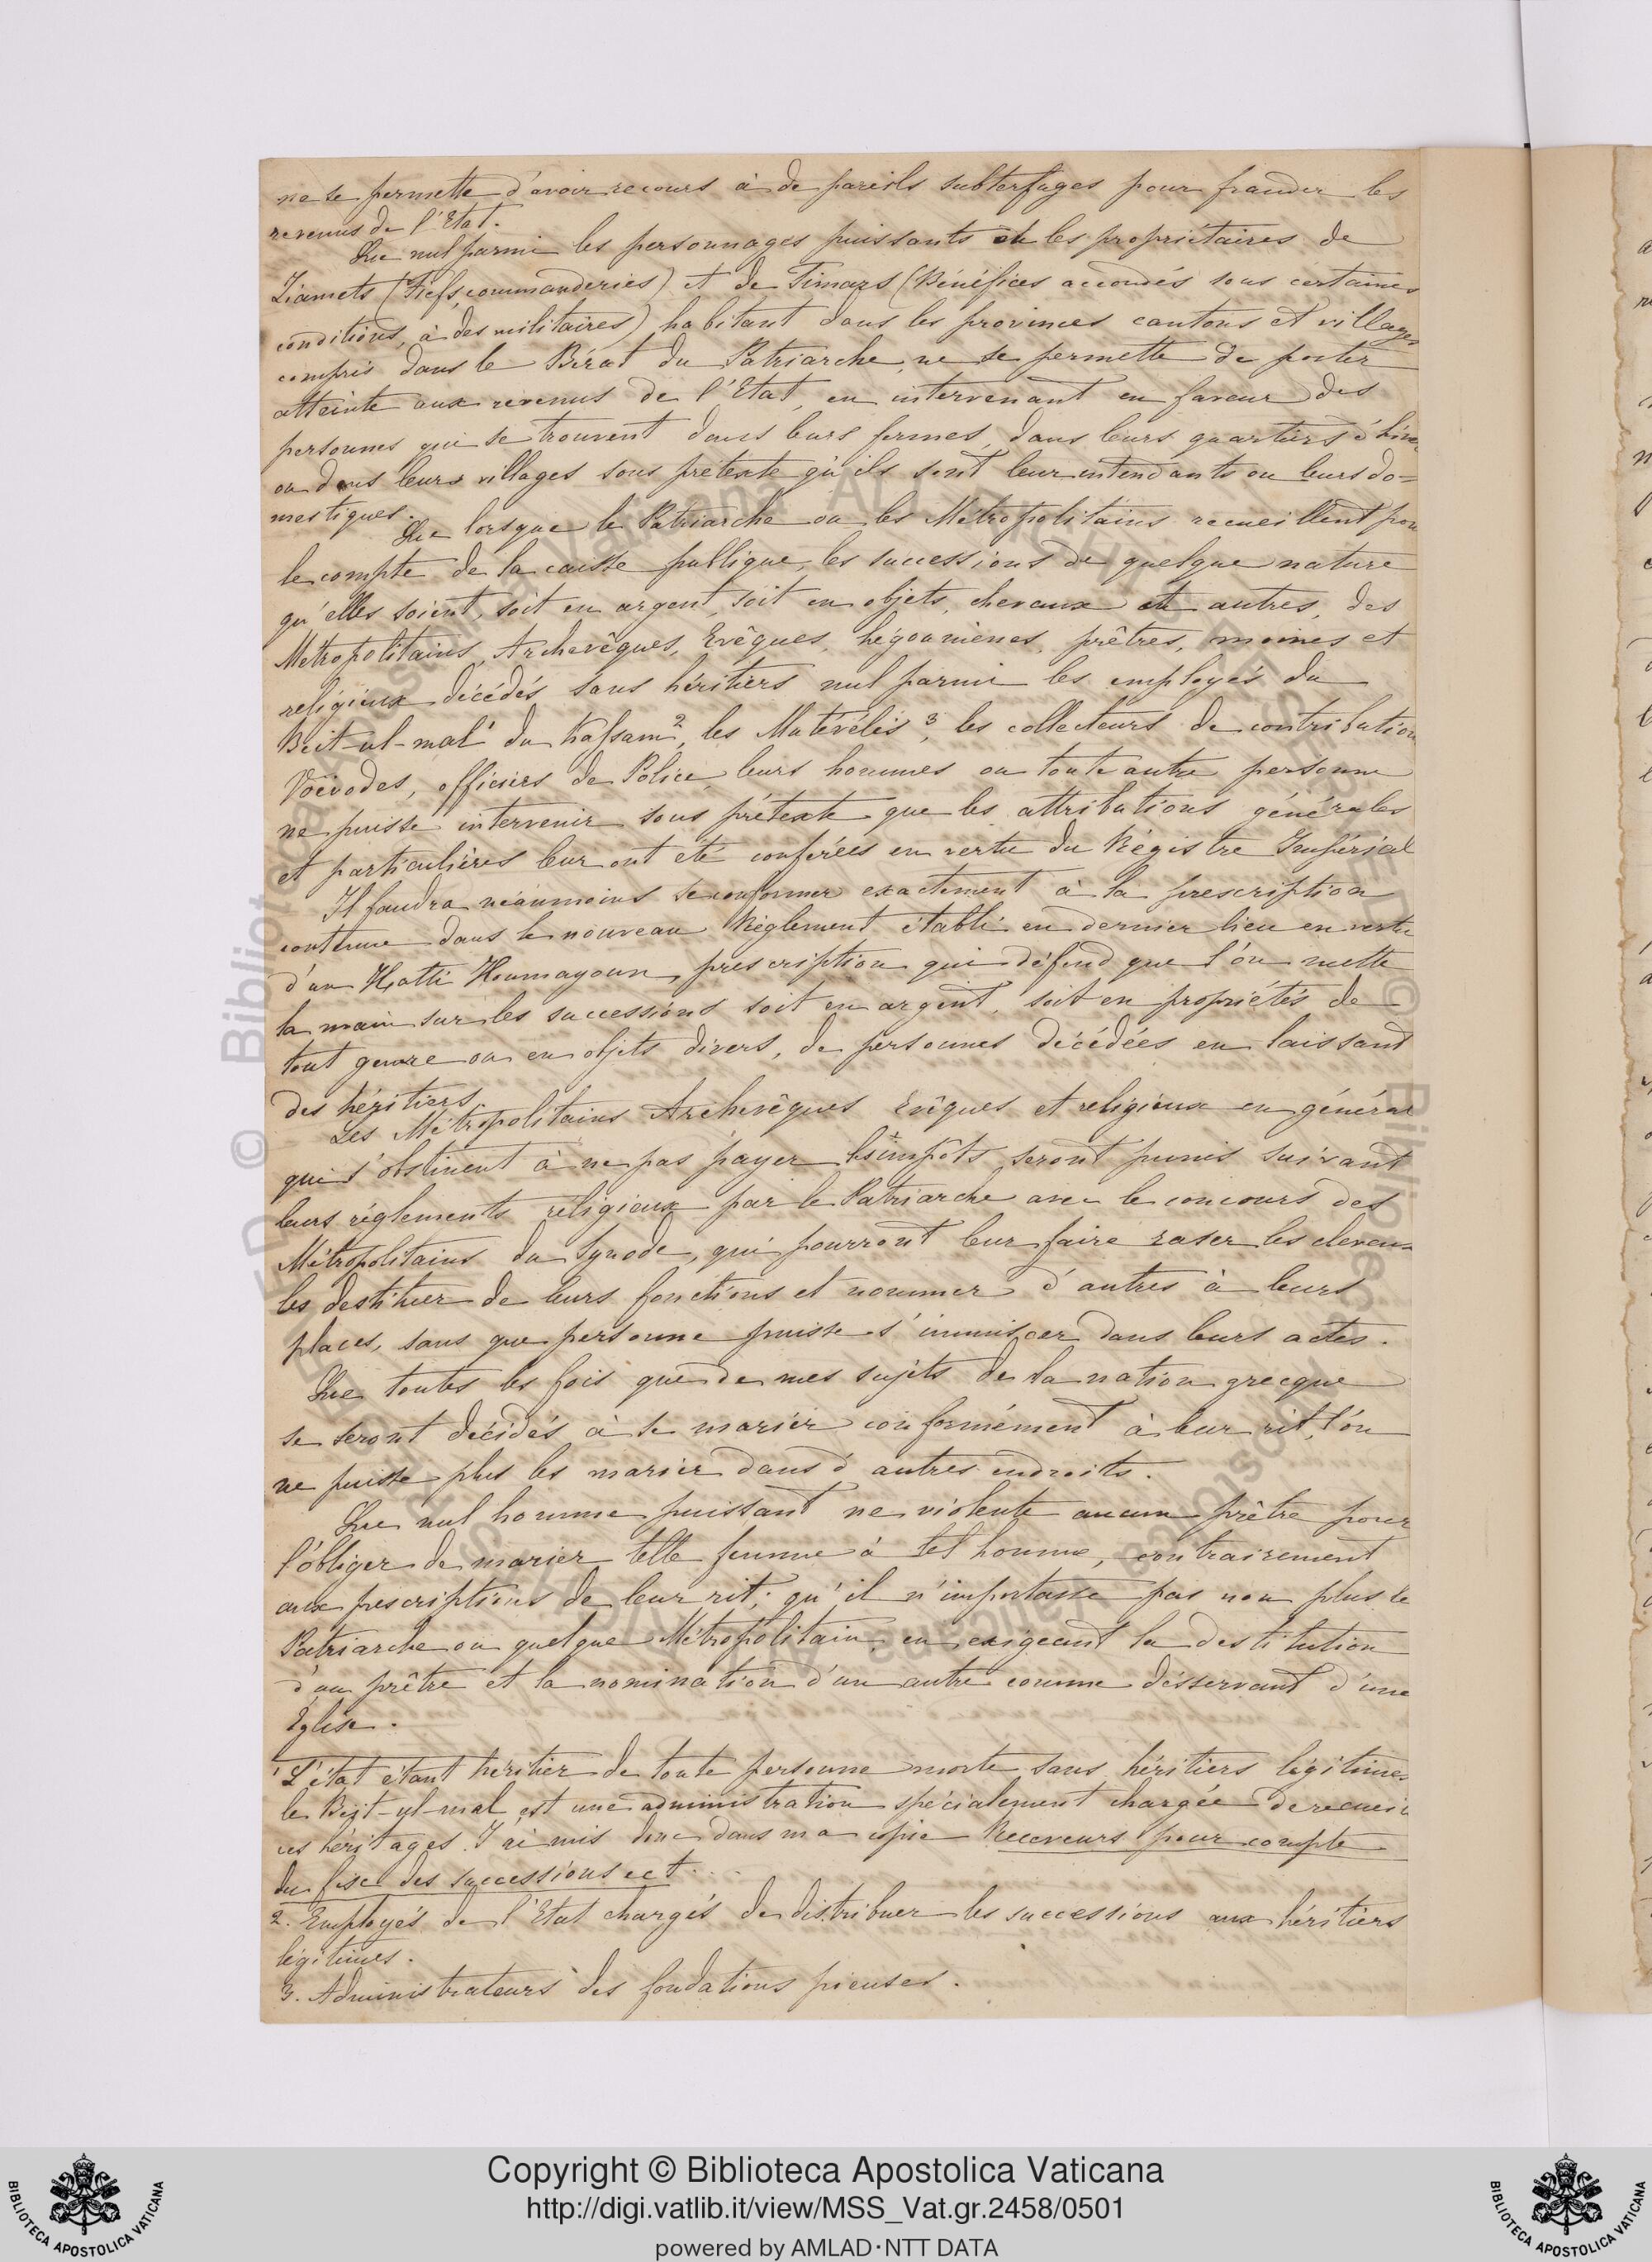 ne se permette d'avoir recours à de pareils subterfuges pour frauder les
revenus de l'Etat.
Que nul parmi les personnages puissants et les propriétaires de
Ziamets (Fiefs, commanderies) et de Timars (Bénéfices accordés sous certaines
conditions, à des militaires) habitant dans les provinces cantons et villages
compris dans le Bérat du Patriarche, ne se permette de porter
atteinte aux revenus de l'Etat, en intervenant en faveur des
personnes qui se trouvent dans leurs fermes, dans leurs quartiers d'hiver
ou dans leurs villages sous prétexte qu'ils sont leur intendants ou leurs do=
mestiques.
Que lorsque le Patriarche ou les Métropolitains recueillent pour
le compte de la caisse publique, les successions de quelque nature
qu'elles soient, soit en argent, soit en objets, chevaux et autres, des
Métropolitains, Archevêques, Evêques, hégoumènes, prêtres, moines et
religieux décédés sans héritiers nul parmi les employés du
Beit-ul-mal¹ du Kassam², les Mutévélis³, les collecteurs de contribution
Voévodes, officiers de Police, leurs hommes ou toute autre personne
ne puisse intervenir sous prétexte que les attributions générales
et particulières leur ont été conférées en vertu du Régistre Impérial
Il faudra néanmoins se conformer exactement à la prescription
contenue dans le nouveau Règlement établi en dernier lieu en vertu
d'un Hatti Houmayoun, prescription qui défend que l'on mette
la main sur les successions soit en argent, soit en propriétés de
tout genre ou en objets divers, de personnes décédées en laissant
des héritiers.
Les Métropolitains Archevêques Evêques et religieux en général
qui s'obstinent à ne pas payer les impôts seront punis suivant
leurs réglements religieux par le Patriarche avec le concours des
Métropolitains du Synode, qui pourront leur faire raser les cheveux
les destituer de leurs fonctions et nommer d'autres à leurs
places, sans que personne puisse s'immiscer dans leurs actes.
Que toutes les fois que de mes sujets de la nation grecque
se seront décidés à se marier conformément à leur rit, l'on
ne puisse plus les marier dans d'autres endroits.
Que nul homme puissant ne violente aucun prêtre pour
l'obliger de marier telle femme à tel homme, contrairement
aux prescriptions de leur rit; qu'il n'importune pas non plus le
Patriarche ou quelque Métropolitain, en exigeant la destitution
d'un prêtre et la nomination d'un autre comme désservant d'une
Église.
¹ L'état étant héritier de toute personne morte sans héritiers légitimes
le Beit-ul-mal est une administration spécialement chargée de
ces héritages. J'ai mis donc dans ma copie Receveurs pour compte
du fisc des successions ect...
2. Employés de l'Etat chargés de distribuer les successions aux héritiers
légitimes.
3. Administrateurs des fondations pieuses.
Copyright © Biblioteca Apostolica Vaticana
http://digi.vatlib.it/view/MSS_Vat.gr.2458/0501
powered by AMLAD·NTT DATA
BIBLIOTECA APOSTOLICA VATICANA
BIBLIOTECA APOSTOLICA VATICANA